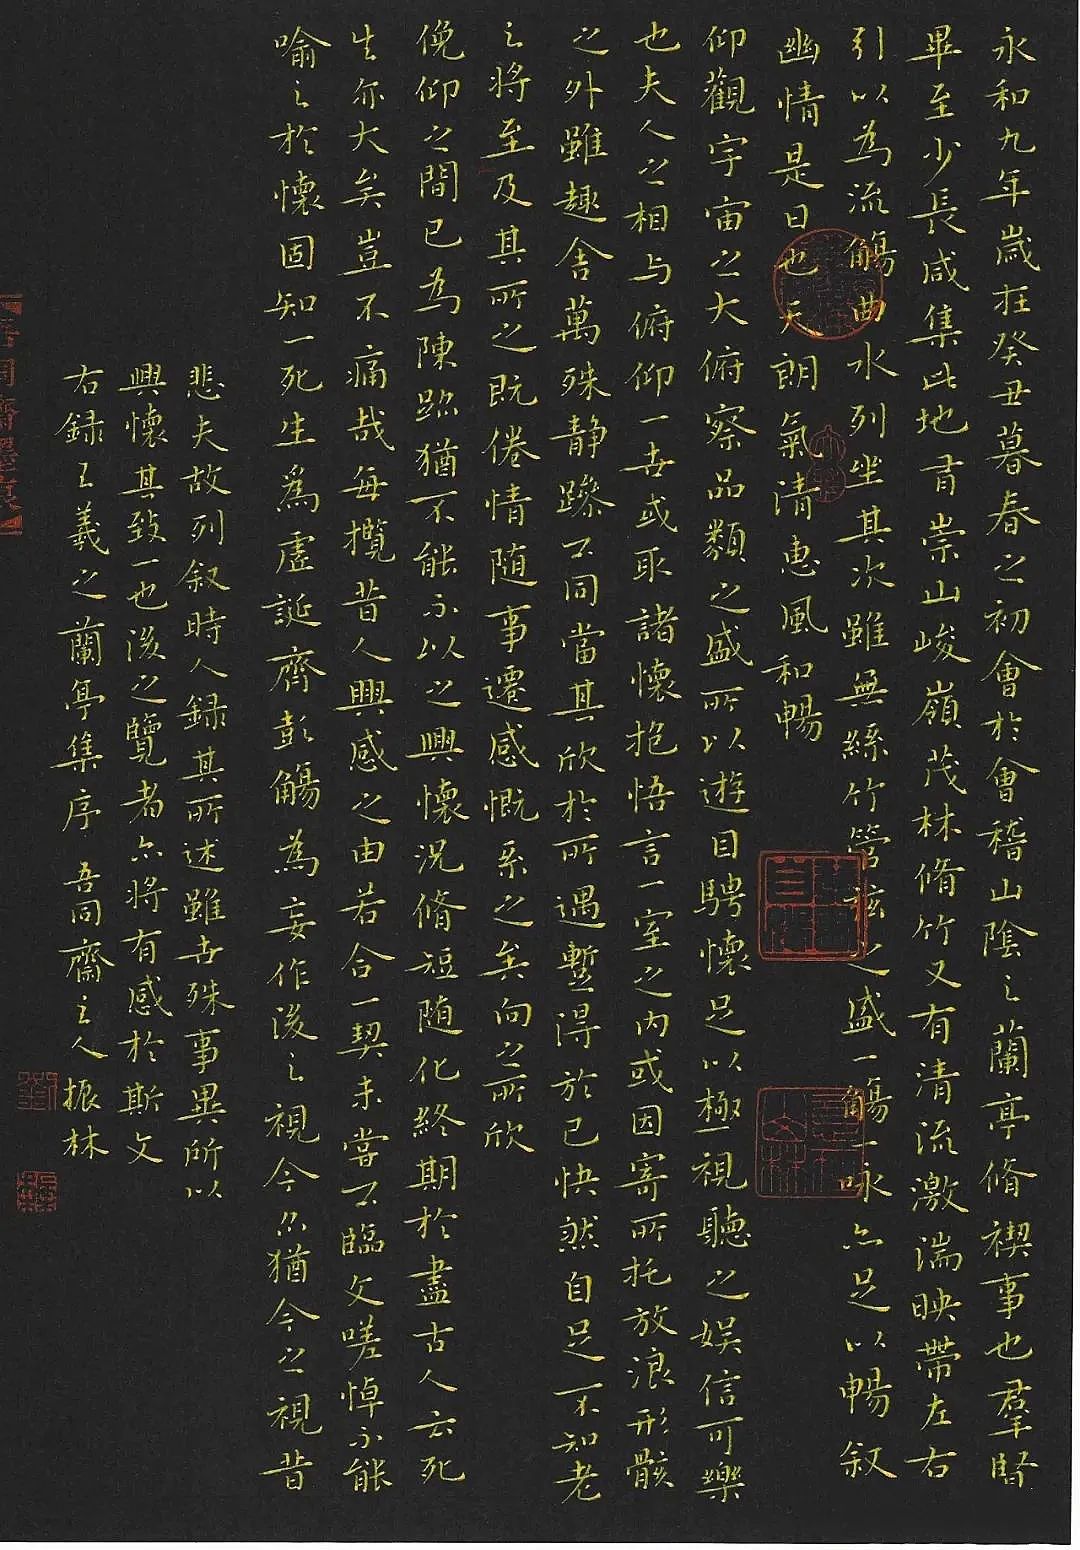 永和九年歲在癸丑暮春之初會於會稽山陰之蘭亭脩禊事也羣賢
畢至少長咸集此地有崇山峻嶺茂林脩竹又有清流激湍映帶左右
引以為流觴曲水列坐其次雖無絲竹管弦之盛一觴一詠亦足以暢叙
幽情是日也天朗氣清惠風和暢
仰觀宇宙之大俯察品類之盛所以遊目騁懷足以極視聽之娛信可樂
也夫人之相与俯仰一世或取諸懷抱悟言一室之內或因寄所托放浪形骸
之外雖趣舍萬殊静躁不同當其欣於所遇暫得於己快然自足不知老
之將至及其所之既倦情随事遷感慨系之矣向之所欣
俛仰之間已為陳跡猶不能不以之興懷況脩短随化終期於盡古人云死
生亦大矣豈不痛哉每攬昔人興感之由若合一契未嘗不臨文嗟悼不能
喻之於懷固知一死生爲虛誕齊彭觴為妄作後之視今亦猶今之視昔
悲夫故列叙時人録其所述雖世殊事異所以
興懷其致一也後之覽者亦將有感於斯文
右録王羲之蘭亭集序 吾同齋主人振林